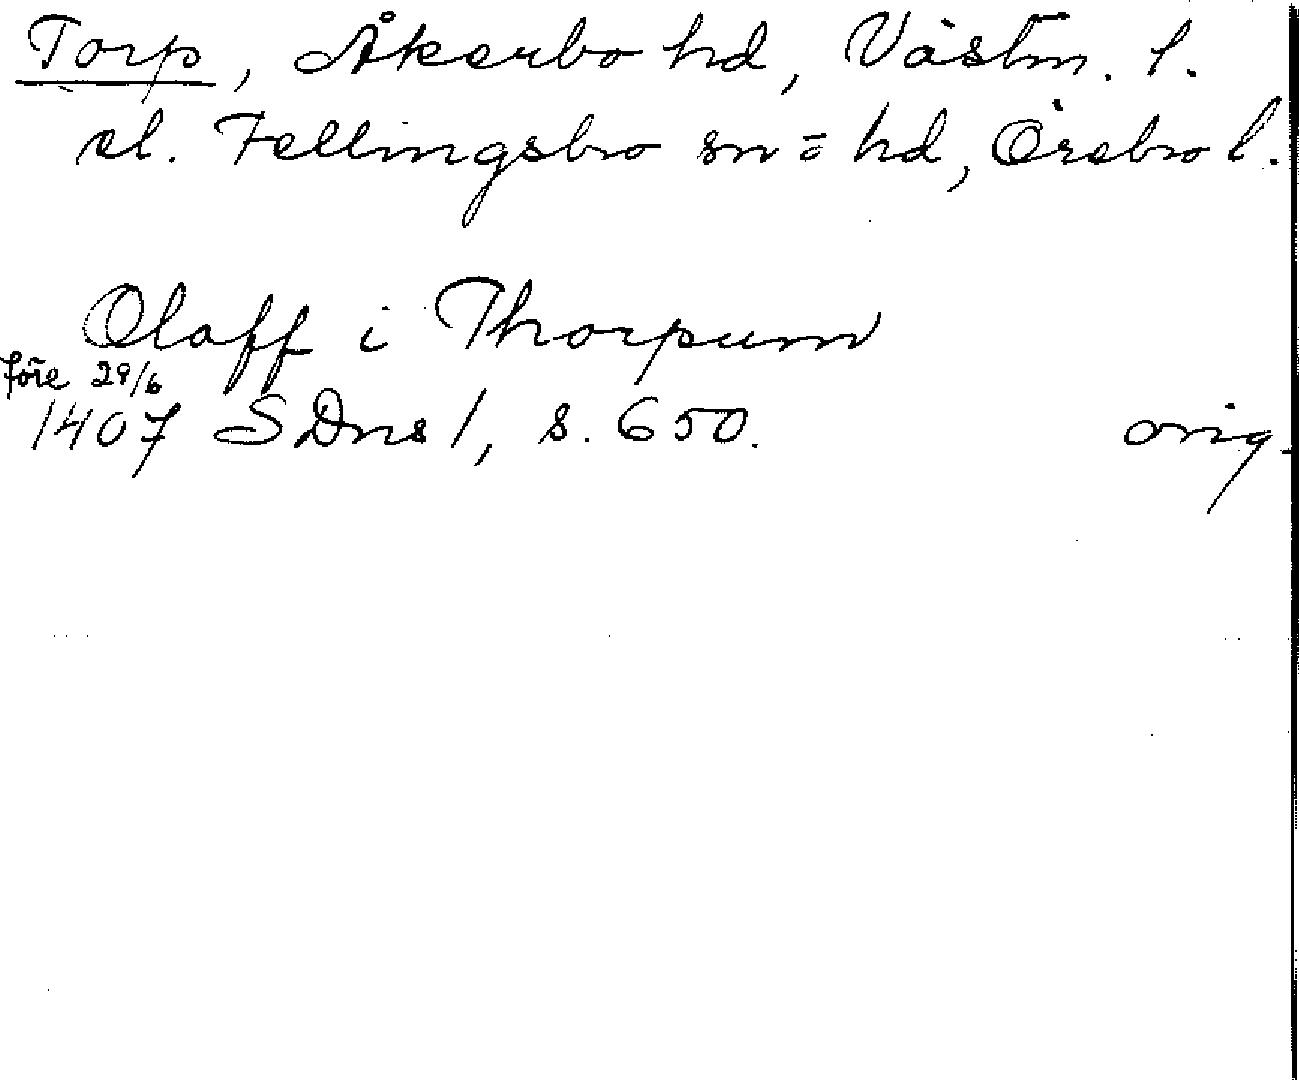 Torp, Åkerbo hd, Västm. l.
el. Fellingsbro sn = hd, Örebro l.
Olaff i Thorpum
före 29/6
1407 SDns 1, s. 650. orig.